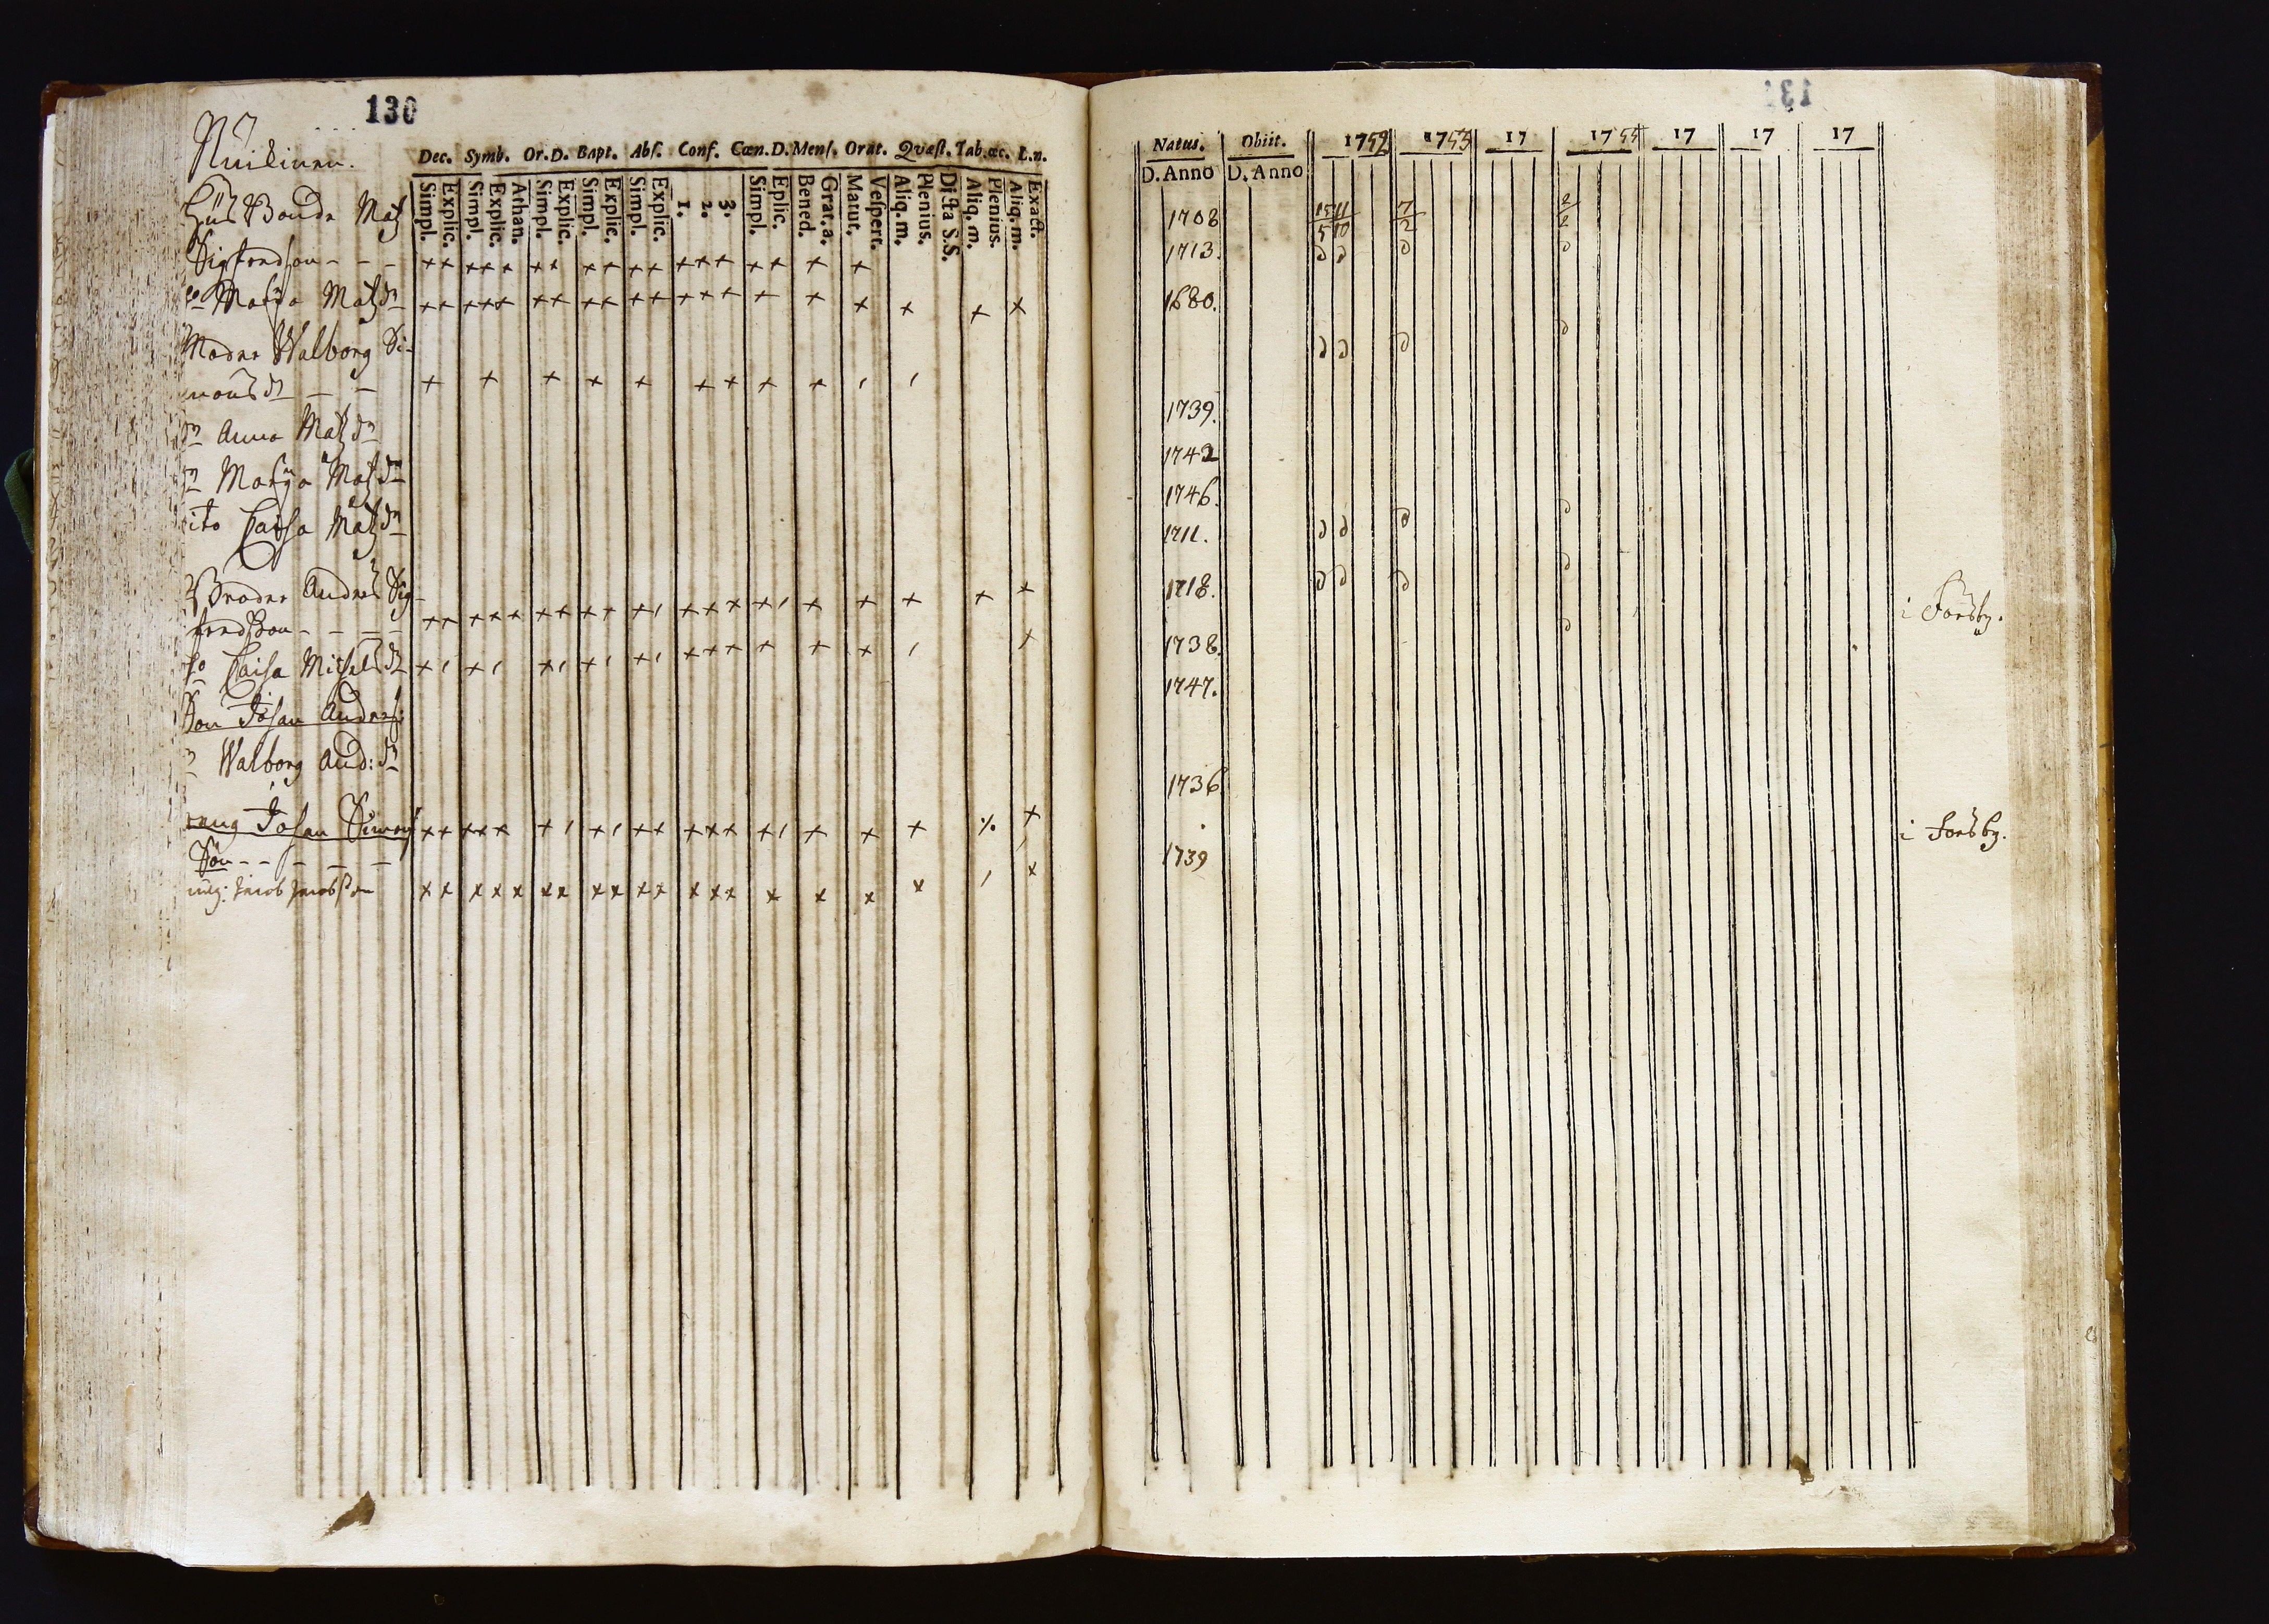 130
Nuikinen.
Dec. Symb. Or.D. Bapt. Abs. Conf. Cœn.D. Mens. Orat. Qvæst. Tab.œc. L.n.
Simpl. Explic. Simpl. Explic. Athan. Simpl. Explic. Simpl. Explic. Simpl. Explic. 1. 2. 3. Simpl. Eplic. Bened. Grat. a. Matut. Vespert. Aliq. m. Plenius. Dicta S.S. Aliq. m. Plenius. Aliq. m. Exact.
Hüs Bonde Mats
Sigfredson - - - ++ +++ ++ ++ ++ +++ ++ + +
Maria Mats dr ++ +++ ++ ++ ++ +++ + + + + + +
Moder Walborg Si-
mons dr - - + + + + + ++ + + , ,
dr Anna Mats dr
dr Maria Mats dr
dito Caisa Mats dr
Broder Anders Sig-
fredsson - - - - ++ +++ ++ ++ +, +++ +, + + + + +
Caisa Michels dr +, +, +, +, +, +++ + + + , +
Son Johan Anders:
dr Walborg And: dr
Johan Simons ++ +++ +, +, ++ +++ +, + + + ./. +
Son - - - - -
Jacob Jacobsson ++ +++ ++ ++ ++ +++ + + + + , +
131
Natus. Obiit. 1752 1753 17 1755 17 17 17
D. Anno D. Anno
1708 15/5 11/10 7/2 2/2
1713.
1680.
1739.
1742
1746.
1711.
1718. i Forsby.
1738.
1747.
1736. i Forsby.
1739